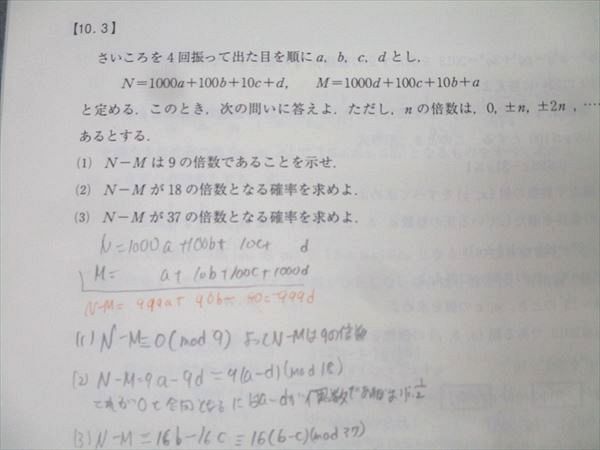 【10.3】
さいころを4回振って出た目を順にa, b, c, dとし,
N=1000a+100b+10c+d, M=1000d+100c+10b+a
と定める. このとき, 次の問いに答えよ. ただし, nの倍数は, 0, ±n, ±2n, …
あるとする.
(1) N-Mは9の倍数であることを示せ.
(2) N-Mが18の倍数となる確率を求めよ.
(3) N-Mが37の倍数となる確率を求めよ.
N=1000a+100b+10c+d
M= a+10b+100c+1000d
N-M= 999a+90b-90c-999d
(1) N-M≡0(mod 9) よってN-Mは9の倍数
(2) N-M≡9a-9d≡9(a-d)(mod 18)
これが0と合同となるにはa-dが偶数であればよい 1/2
(3) N-M≡16b-16c≡16(b-c)(mod 37)